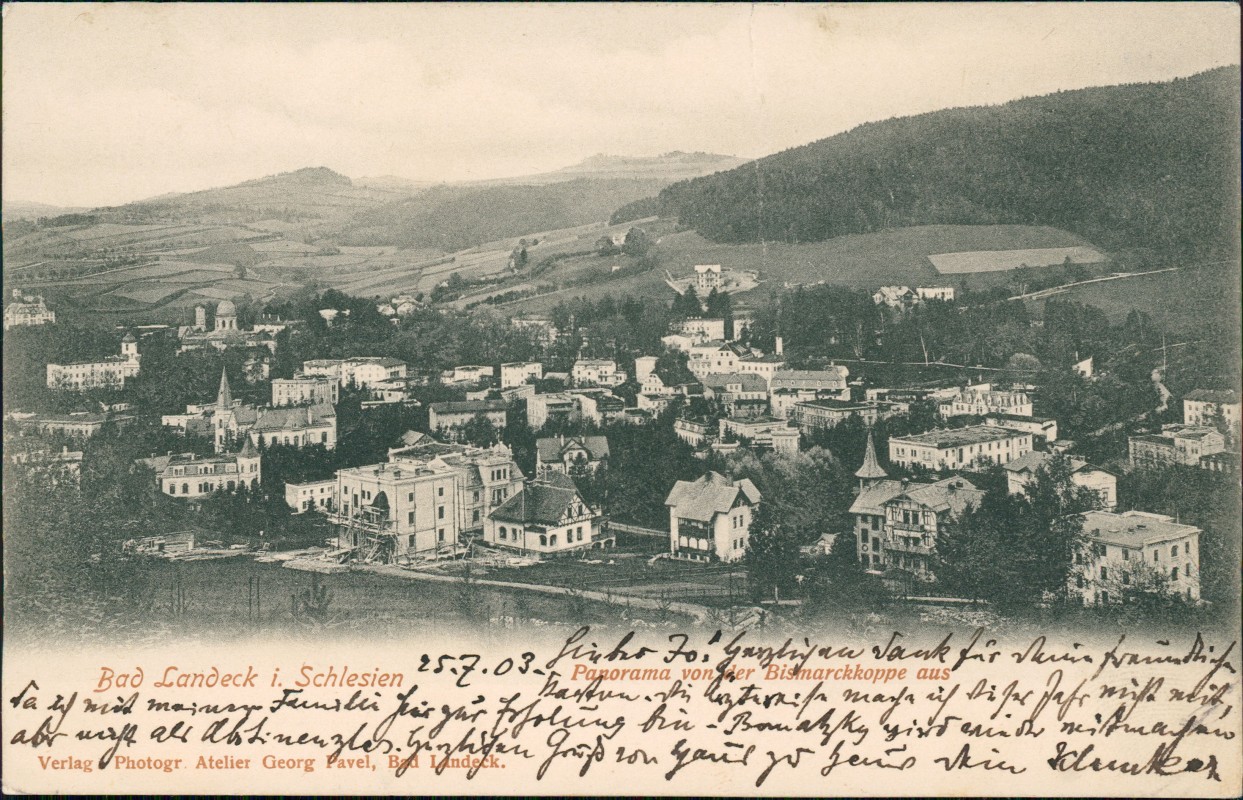 Bad Landeck i. Schlesien
25.7.03.
Panorama von der Bismarckkoppe aus
Lieber Jo! Herzlichen Dank für deine freundlichen
Karten. die mache ich dieses Jahr nicht mit,
da ich mit meiner Familie hier zur Erholung bin - wird wieder mitmachen
aber nicht als Abstinenzler. Herzlichen Gruß von Haus zu Haus dein
Verlag Photogr. Atelier Georg Pavel, Bad Landeck.